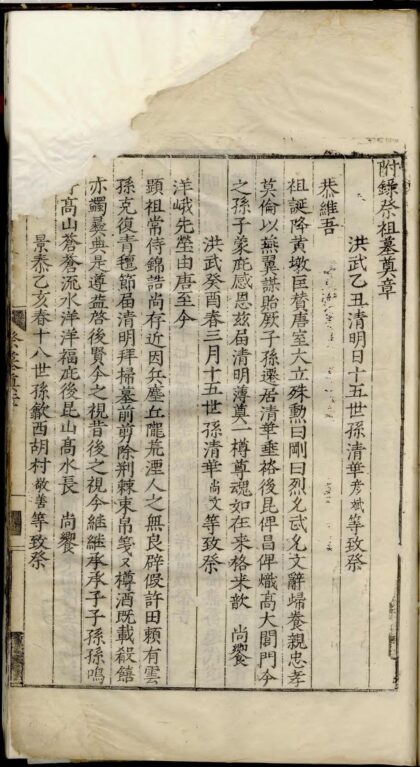 附錄祭祖墓奠章
洪武乙丑清明日十五世孫清華彥斌等致祭
恭維吾
祖誕降黄墩巨賛唐室大立殊勲曰剛曰烈允武允文辭歸養親忠孝
莫倫以燕翼謀貽厥子孫遷居清華垂裕後昆俾昌俾熾高大閭門今
之孫子蒙庇感恩兹届清明薄奠一樽尊魂如在来格来歆　尚饗
洪武癸酉春三月十五世孫清華尚文等致祭
洋峨先塋由唐至今
顯祖常侍錦誥尚存近因兵塵丘隴荒湮人之無良辟假許田頼有雲
孫克復青氊節届清明拜掃墓前剪除荆棘束帛箋又樽酒既載殺饎
亦蠲曇典是遵益啓後賢今之視昔後之視今継継承承子子孫孫鳴
高山蒼蒼流水洋洋福庇後昆山髙水長　尚饗
景泰乙亥春十八世孫歙西胡村敬善等致祭